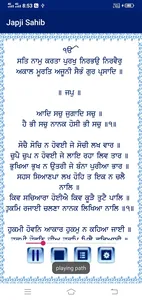 8:53
Japji Sahib
ੴ
ਸਤਿ ਨਾਮੁ ਕਰਤਾ ਪੁਰਖੁ ਨਿਰਭਉ ਨਿਰਵੈਰੁ
ਅਕਾਲ ਮੂਰਤਿ ਅਜੂਨੀ ਸੈਭੰ ਗੁਰ ਪ੍ਰਸਾਦਿ ॥
॥ ਜਪੁ ॥
ਆਦਿ ਸਚੁ ਜੁਗਾਦਿ ਸਚੁ ॥
ਹੈ ਭੀ ਸਚੁ ਨਾਨਕ ਹੋਸੀ ਭੀ ਸਚੁ ॥੧॥
ਸੋਚੈ ਸੋਚਿ ਨ ਹੋਵਈ ਜੇ ਸੋਚੀ ਲਖ ਵਾਰ ॥
ਚੁਪੈ ਚੁਪ ਨ ਹੋਵਈ ਜੇ ਲਾਇ ਰਹਾ ਲਿਵ ਤਾਰ ॥
ਭੁਖਿਆ ਭੁਖ ਨ ਉਤਰੀ ਜੇ ਬੰਨਾ ਪੁਰੀਆ ਭਾਰ ॥
ਸਹਸ ਸਿਆਣਪਾ ਲਖ ਹੋਹਿ ਤ ਇਕ ਨ ਚਲੈ
ਨਾਲਿ ॥
ਕਿਵ ਸਚਿਆਰਾ ਹੋਈਐ ਕਿਵ ਕੂੜੈ ਤੁਟੈ ਪਾਲਿ ॥
ਹੁਕਮਿ ਰਜਾਈ ਚਲਣਾ ਨਾਨਕ ਲਿਖਿਆ ਨਾਲਿ ॥੧॥
ਹੁਕਮੀ ਹੋਵਨਿ ਆਕਾਰ ਹੁਕਮੁ ਨ ਕਹਿਆ ਜਾਈ ॥
playing path